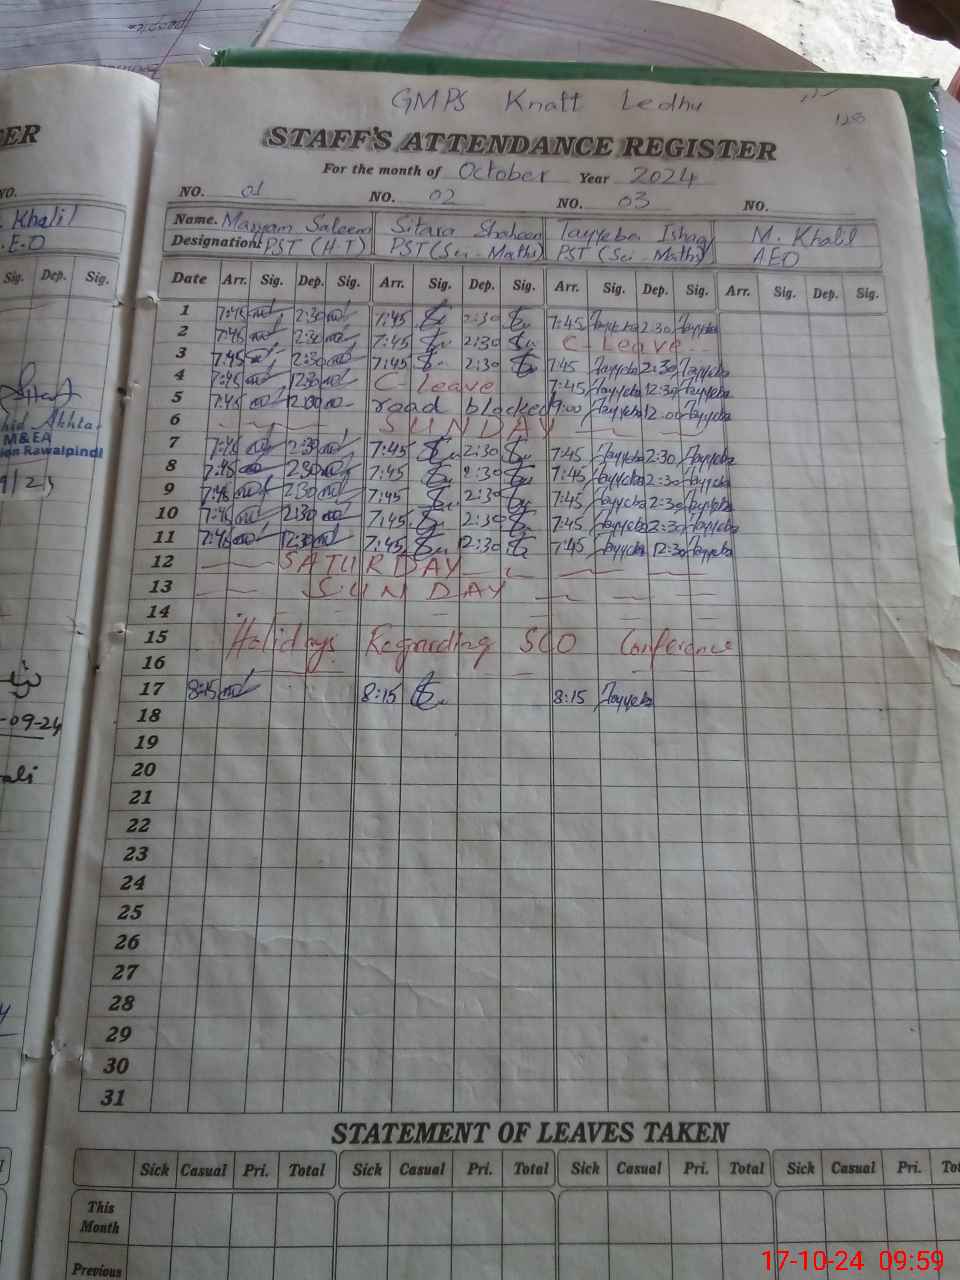 GMPS Knatt Ledhu
128
STAFF'S ATTENDANCE REGISTER
For the month of October Year 2024
NO. 01 NO. 02 NO. 03 NO.
Name. Maryam Saleem Sitara Shaheen Tayyeba Ishaq M. Khalil
Designation PST (H.T) PST (Sci-Math) PST (Sci-Math) AEO
Date Arr. Sig. Dep. Sig. Arr. Sig. Dep. Sig. Arr. Sig. Dep. Sig. Arr. Sig. Dep. Sig.
1 7:45 2:30 7:45 2:30 7:45 Tayyeba 2:30 Tayyeba
2 7:45 2:30 7:45 2:30 C-Leave
3 7:45 2:30 7:45 2:30 7:45 Tayyeba 2:30 Tayyeba
4 7:45 12:30 C-Leave 7:45 Tayyeba 12:30 Tayyeba
5 7:45 12:00 road blocked 9:00 Tayyeba 12:00 Tayyeba
6 SUNDAY
7 7:45 2:30 7:45 2:30 7:45 Tayyeba 2:30 Tayyeba
8 7:45 2:30 7:45 2:30 7:45 Tayyeba 2:30 Tayyeba
9 7:45 2:30 7:45 2:30 7:45 Tayyeba 2:30 Tayyeba
10 7:45 2:30 7:45 2:30 7:45 Tayyeba 2:30 Tayyeba
11 7:45 12:30 7:45 12:30 7:45 Tayyeba 12:30 Tayyeba
12 SATURDAY
13 SUNDAY
14
15 Holidays Regarding SCO Conference
16
17 8:15 8:15 8:15 Tayyeba
18
19
20
21
22
23
24
25
26
27
28
29
30
31
STATEMENT OF LEAVES TAKEN
Sick Casual Pri. Total Sick Casual Pri. Total Sick Casual Pri. Total Sick Casual Pri.
This
Month
Previous
17-10-24 09:59
Khalil
Sig. Dep. Sig.
Akhtar
M&EA
Rawalpindi
-09-24